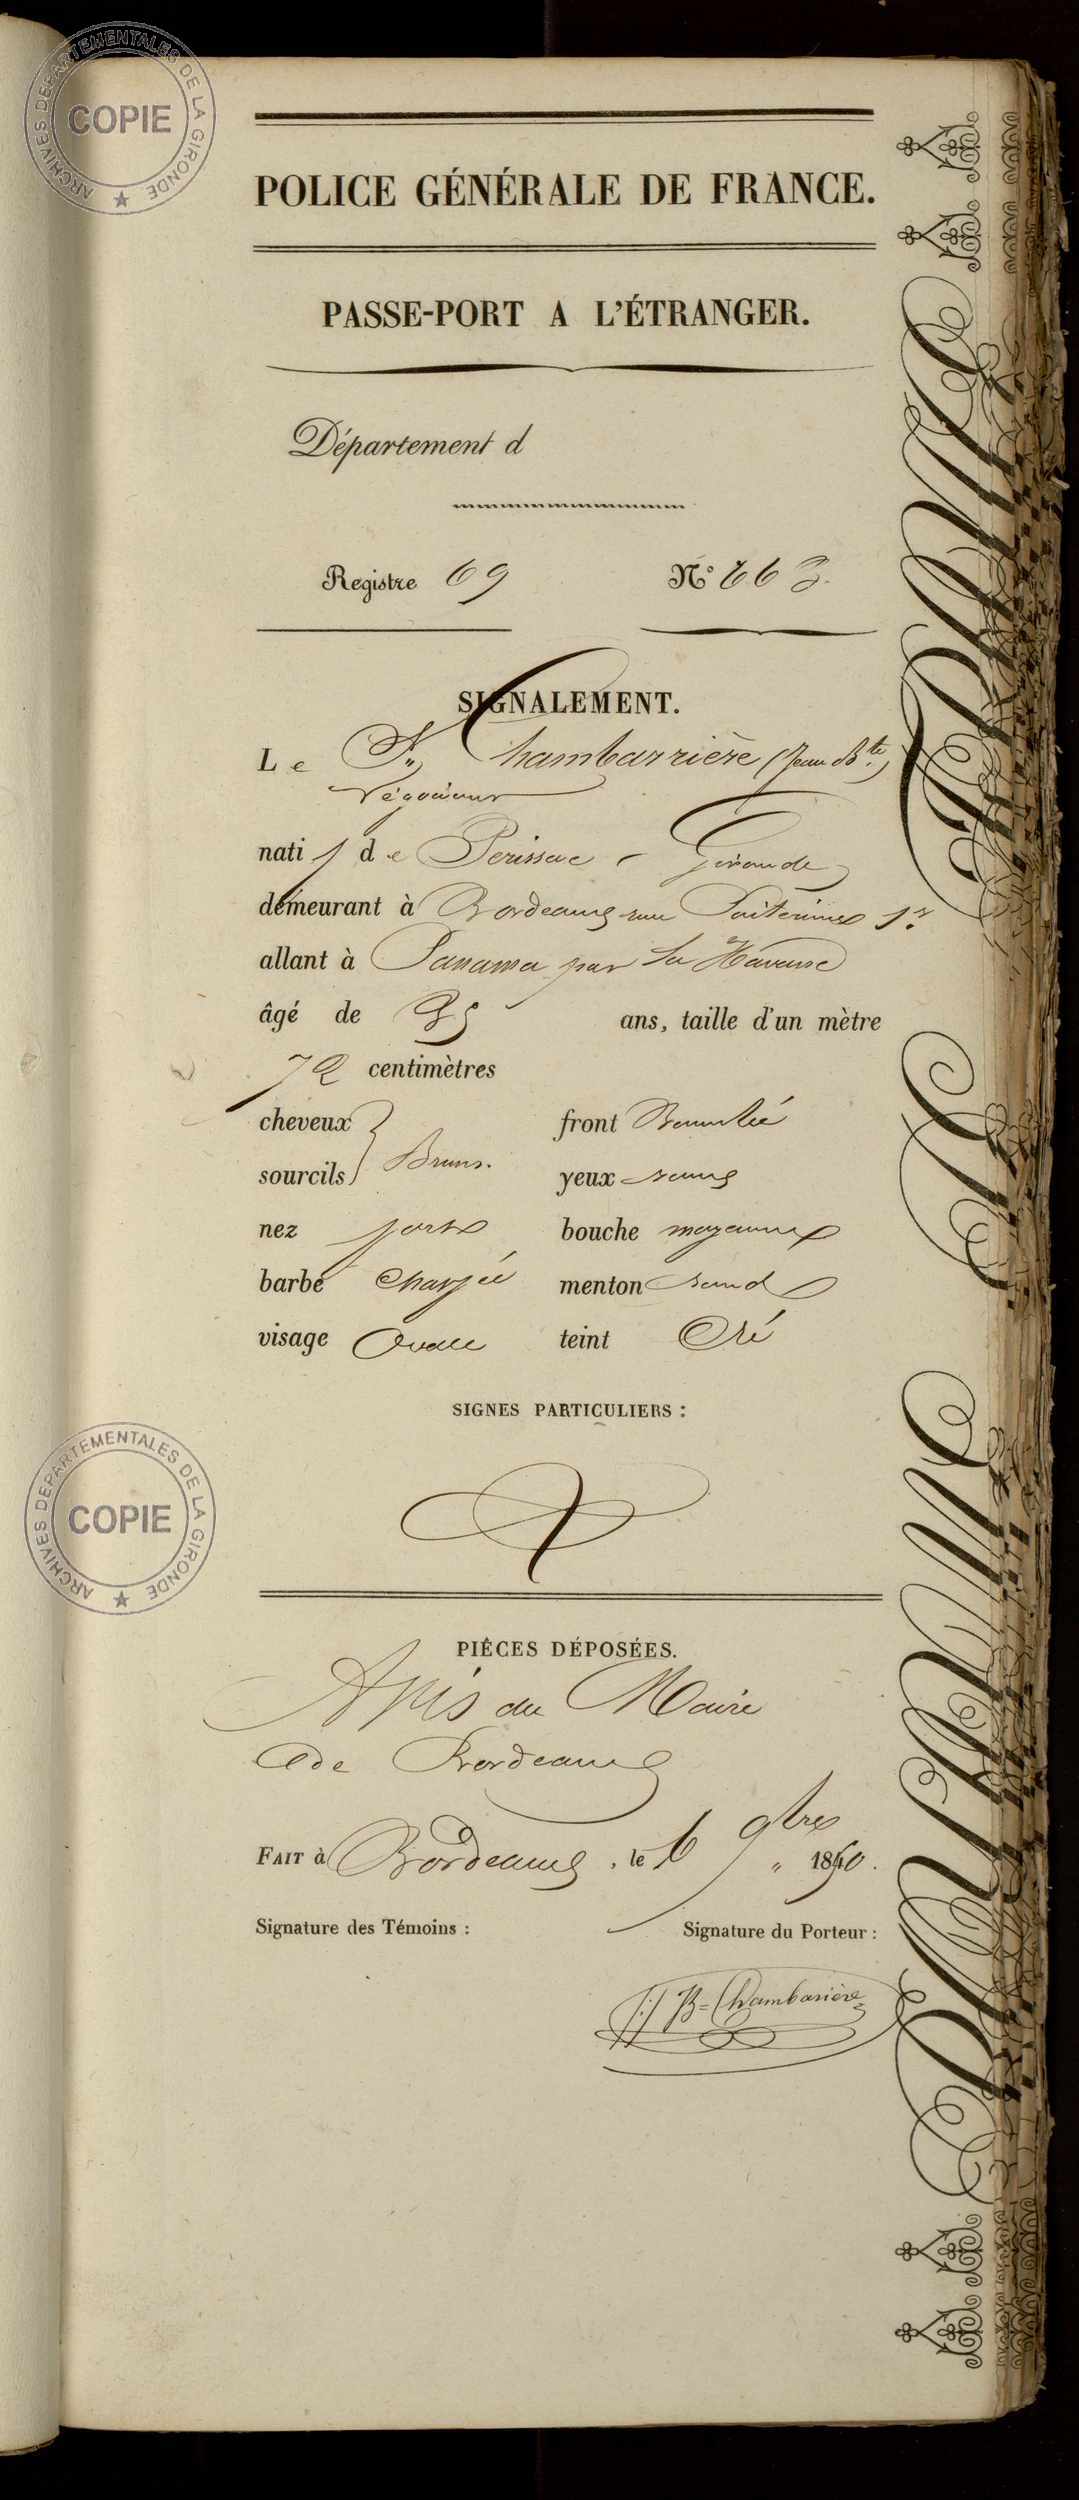 ARCHIVES DEPARTEMENTALES DE LA GIRONDE
COPIE
POLICE GÉNÉRALE DE FRANCE.
PASSE-PORT A L'ÉTRANGER.
Département d
Registre 69 N° 663
SIGNALEMENT.
Le Sr. Chambarrière (Jean Bte)
Négociant
natif de Périssac, Gironde
demeurant à Bordeaux rue
allant à Panama par la Havane
âgé de 35 ans, taille d'un mètre
72 centimètres
cheveux front
sourcils Bruns. yeux roux
nez fort bouche moyenne
barbe Chargée menton rond
visage Ovale teint
SIGNES PARTICULIERS :
ARCHIVES DEPARTEMENTALES DE LA GIRONDE
COPIE
PIÈCES DÉPOSÉES.
Avis du Maire
de Bordeaux
FAIT à Bordeaux, le 6 9bre 1860.
Signature des Témoins : Signature du Porteur :
JB=Chambarière